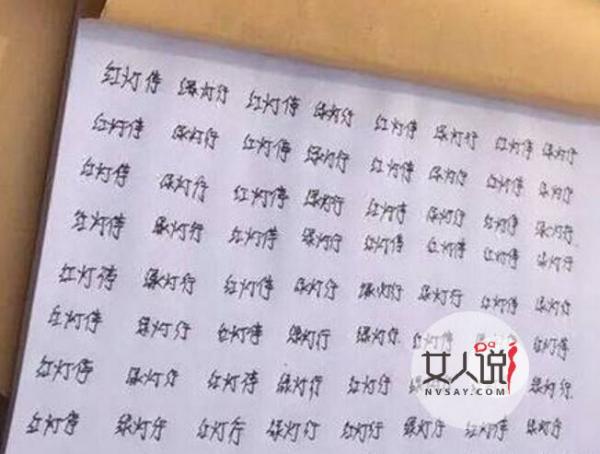 红灯停 绿灯行 红灯停 绿灯行 红灯停 绿灯行 红灯停 绿灯行
红灯停 绿灯行 红灯停 绿灯行 红灯停 绿灯行 红灯停 绿灯行
红灯停 绿灯行 红灯停 绿灯行 红灯停 绿灯行 红灯停 绿灯行
红灯停 绿灯行 红灯停 绿灯行 红灯停 红灯停 红灯停 绿灯行
红灯停 绿灯行 红灯停 绿灯行 绿灯行 绿灯行 红灯停 绿灯行
红灯停 绿灯行 红灯停 绿灯行 绿灯行 红灯停 红灯停
红灯停 绿灯行 红灯停 绿灯行 红灯行 绿灯行
红灯停 绿灯行 红灯行 绿灯行 红灯行 绿灯行 红灯停 绿灯行
女人说
NVSAY.COM